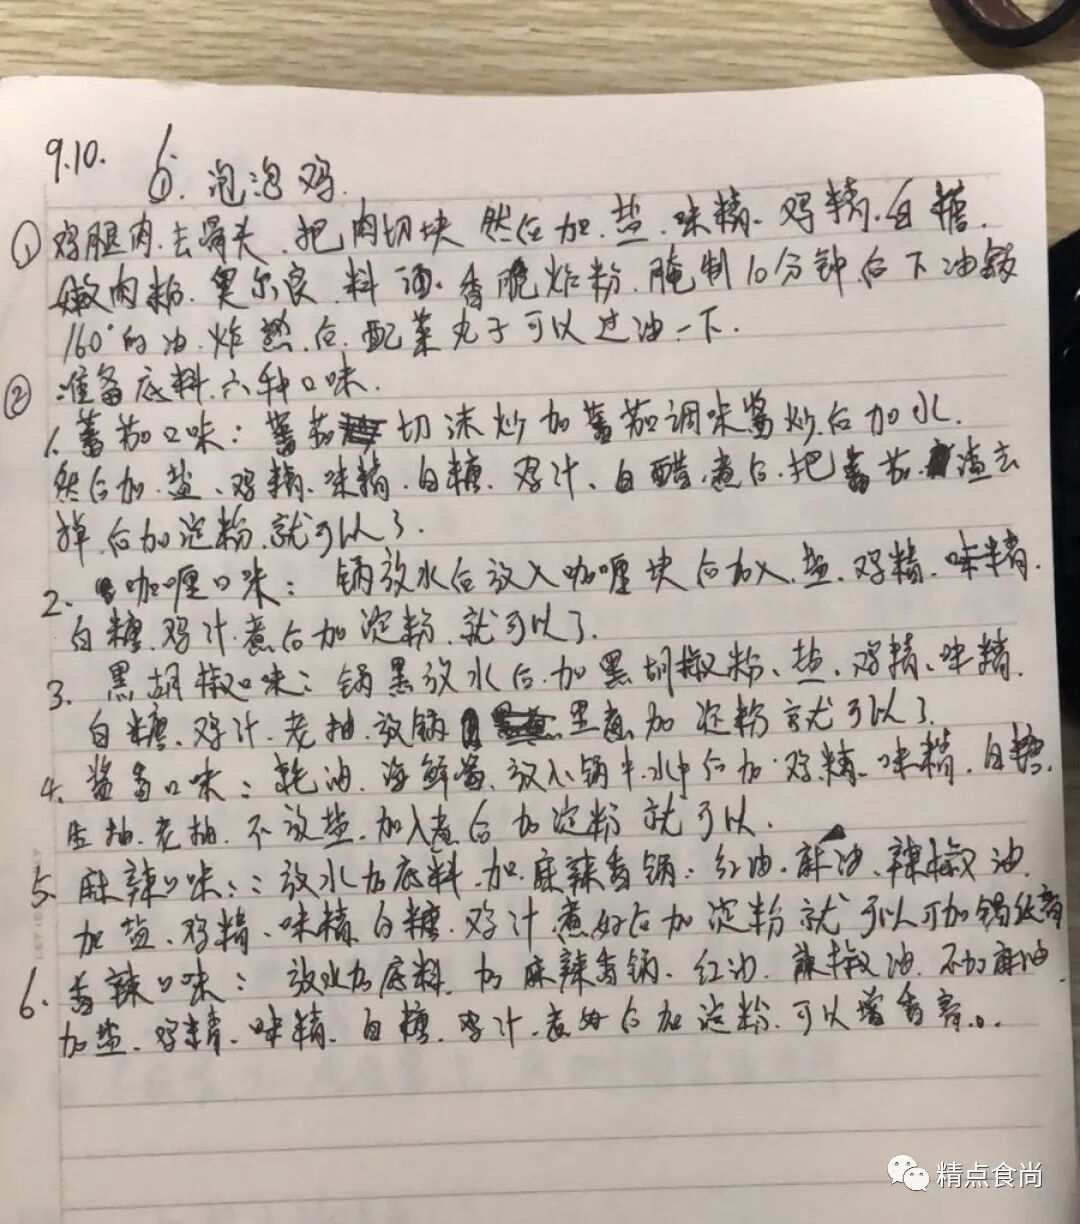 9.10.
6. 泡泡鸡.
① 鸡腿肉.去骨头.把肉切块 然后加.盐.味精.鸡精.白糖.
嫩肉粉.奥尔良.料酒.香脆炸粉.腌制10分钟.后下油锅
160°的油.炸熟.后.配菜丸子可以过油一下.
② 准备底料.六种口味.
1. 蕃茄口味：蕃茄切沫炒加蕃茄调味酱炒.后加水.
然后加.盐、鸡精、味精.白糖.鸡汁、白醋.煮后.把蕃茄渣去
掉.后加淀粉.就可以了.
2. 咖喱口味：锅放水后放入咖喱块后加入.盐.鸡精.味精.
白糖.鸡汁.煮后加淀粉.就可以了.
3. 黑胡椒口味：锅里放水后.加黑胡椒粉、盐、鸡精、味精.
白糖、鸡汁.老抽.放锅里煮.加淀粉就可以了.
4. 酱香口味：耗油.海鲜酱.放入锅中.水中后加.鸡精.味精.白糖.
生抽.老抽.不放盐.加入煮后加淀粉就可以.
5. 麻辣口味：：放水加底料.加.麻辣香锅.红油.麻油.辣椒油.
加盐、鸡精、味精.白糖.鸡汁.煮好后加淀粉就可以可加
6. 香辣口味：放水加底料.加麻辣香锅.红油.辣椒油.不加麻油.
加盐.鸡精、味精.白糖.鸡汁.煮好后加淀粉.可以增香膏。.
精点食尚